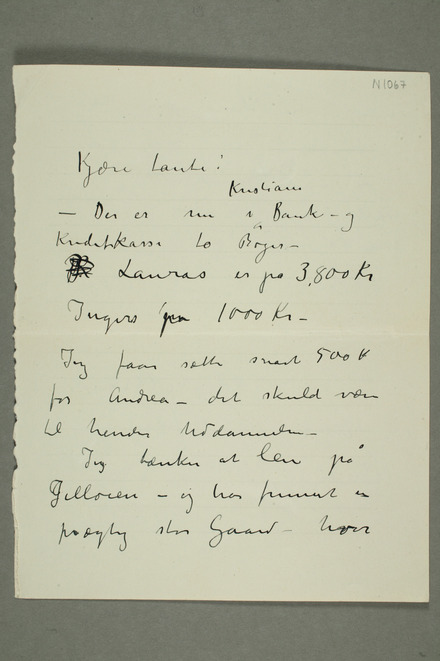 N 1067
Kjære tante!
Kristiania
– Der er nu i Bank- og
Kreditkasse to Bøger –
Lauras er på 3,800 Kr
Ingers på 1000 Kr –
Jeg faar sætte snart 500 K
for Andrea – det skuld være
til hendes Uddannelse –
Jeg tænker at leie på
Jelløen – og har funnet en
prægtig stor Gaard – hvor